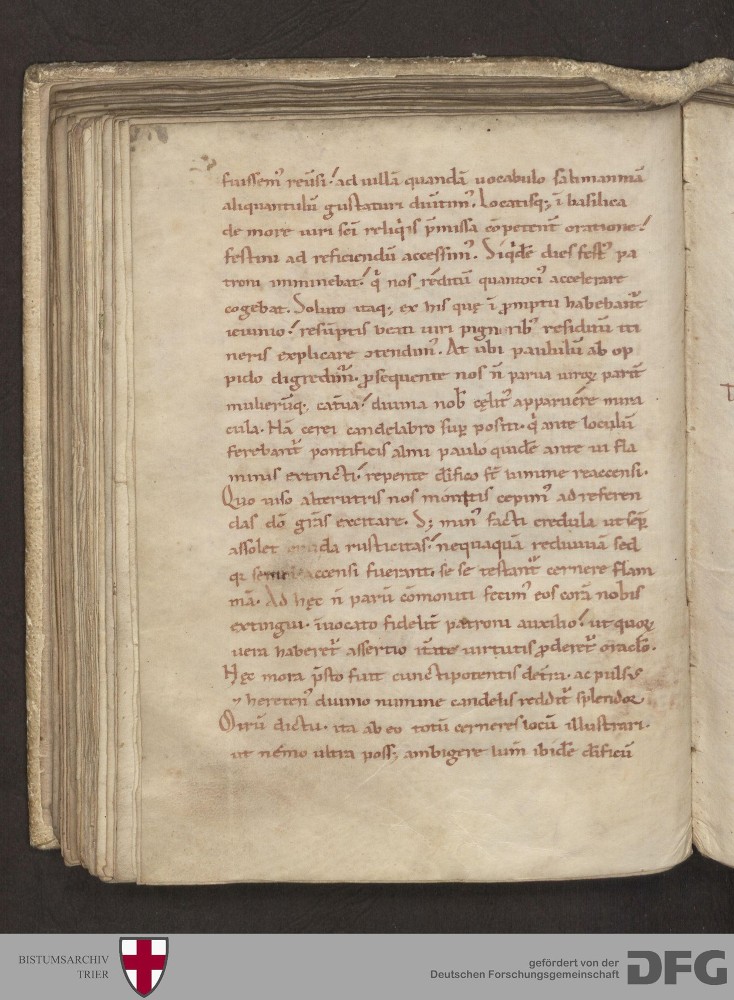 fuissem᷒ reūsi. ad uillā quandā uocabulo
aliquantulū gustaturi diūtim᷒. Locatisq; ī basilica
de more uiri sc̄i reliq̇is p̄missa cōpetent̄ oratione.
festini ad reficiendū accessim᷒. Siq̇dē dies fest᷒ pa
troni imminebat. q̇ nos reditū quantoci᷒ accelerare
cogebat. Soluto itaq; ex his quę ī promptu habebant᷒
ieiunio. resūptis beati uiri pignorib᷒ residuū iti
neris explicare otendim᷒. At ubi paululū ab op
pido digredim᷒. prosequente nos n̄ parua uiroꝝ parit̄
mulierūq; cat̄ua. diuina nob̄ cęlit᷒ apparuēre mira
cula. Nā cerei candelabro sup̄ positi. q̇ ante loculū
ferebant᷒ pontificis almi paulo quidē ante ui fla
minis extincti. repente d̄ifico s̄t lumine reaccensi.
Quo uiso alterutris nos monitis cepim᷒ ad referen
das dō grās excitare. S; min᷒ facti credula ut sēp̄
assolet da rusticitas. nequaquā rediuiuā sed
q̇ accensi fuerant. se se testant᷒ cernere flam
mā. Ad hęc n̄ parū cōmoniti fecim᷒ eos corā nobis
extingui. īuocato fidelit̄ patroni auxilio. ut quoꝝ
uera haberet᷒ assertio uirtutis proderet᷒ oraclo.
Hęc mora p̄sto fuit cunctipotentis dext̄ra. ac pulsis
diuino numine candelis reddit᷒ splendor.
Mirū dictu. ita ab eo totū cerneres locū illustrari.
ut nemo ultra poss; ambigere lum̄ ibidē d̄ificū
BISTUMSARCHIV
TRIER
gefördert von der
Deutschen Forschungsgemeinschaft
DFG